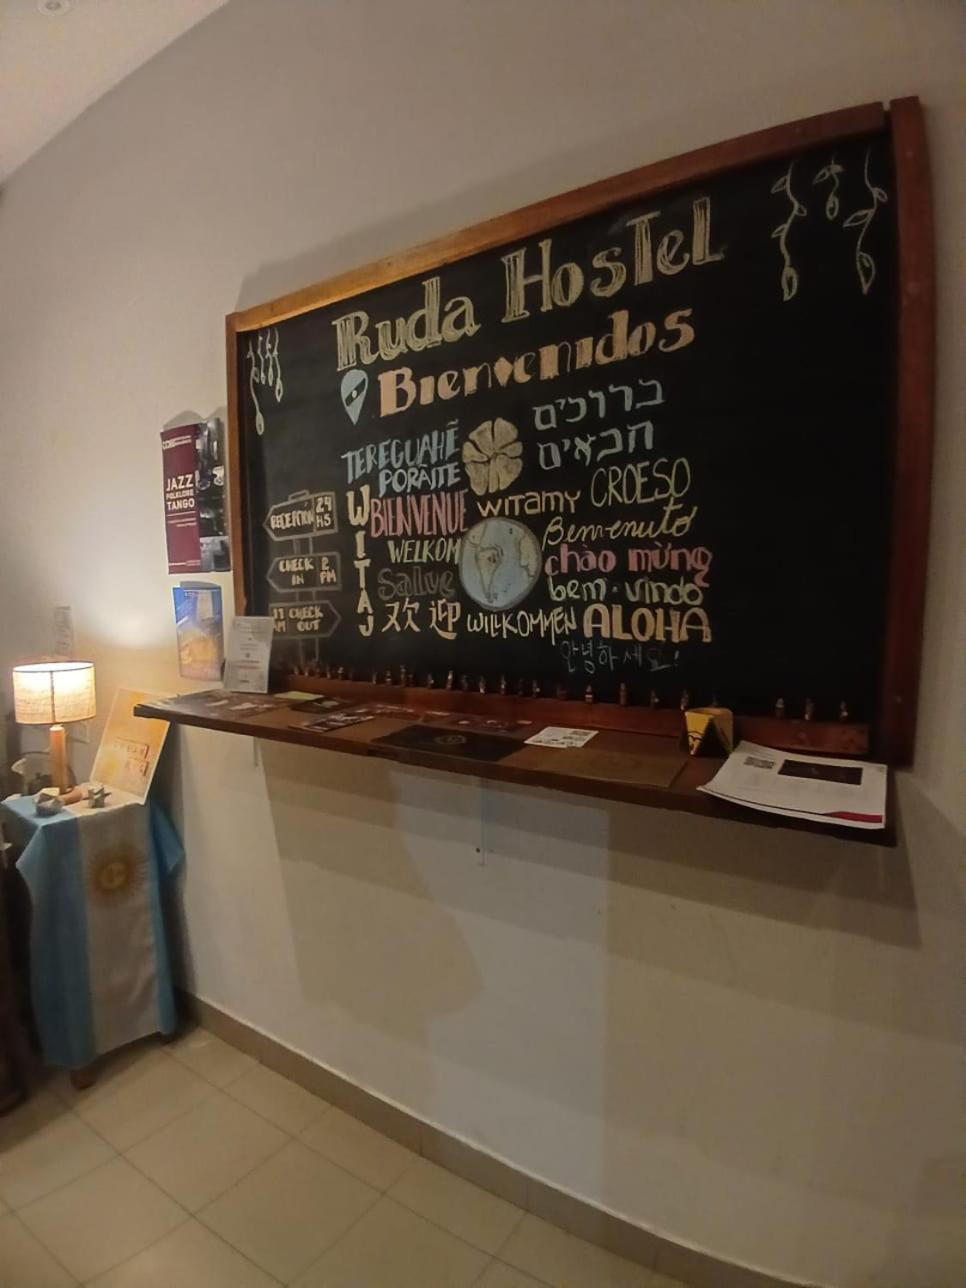 Ruda Hostel
Bienvenidos
TEREGUAHẼ
PORAITE
ברוכים
הבאים
WITAJ
BIENVENUE
WITAMY
CROESO
WELKOM
Benvenuto
Salve
chào mừng
bem-vindo
欢迎
WILLKOMMEN
ALOHA
안녕하세요!
RECEPCIÓN 24 HS
CHECK IN 2 PM
11 AM CHECK OUT
JAZZ
FOLKLORE
TANGO